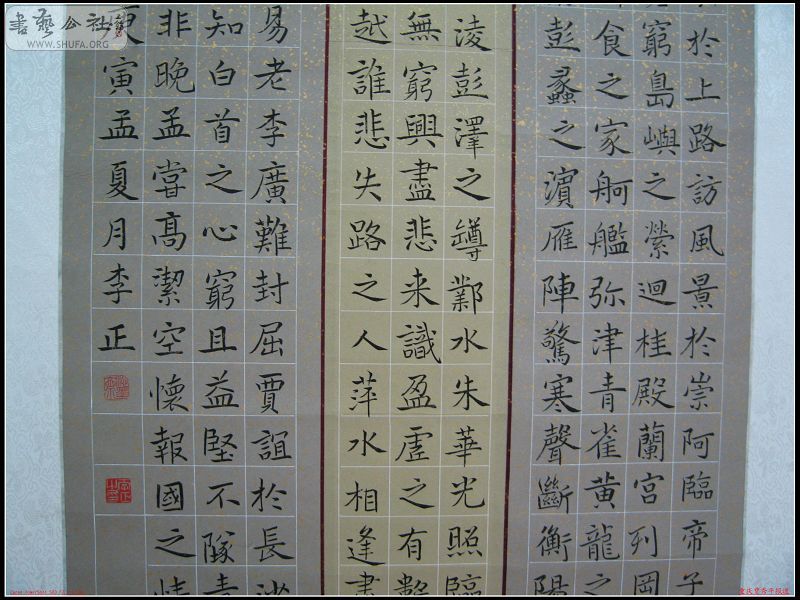 於上路訪風景於崇阿臨帝子
窮島嶼之縈迴桂殿蘭宮列岡
食之家舸艦弥津青雀黃龍之
彭蠡之濱雁陣驚寒聲斷衡陽
淩彭澤之罇鄴水朱華光照臨
無窮興盡悲来識盈虛之有數
越誰悲失路之人萍水相逢盡
易老李廣難封屈賈誼於長沙
知白首之心窮且益堅不墜青
非晚孟嘗高潔空懷報國之情
庚寅孟夏月李正
書藝公社
WWW.SHUFA.ORG